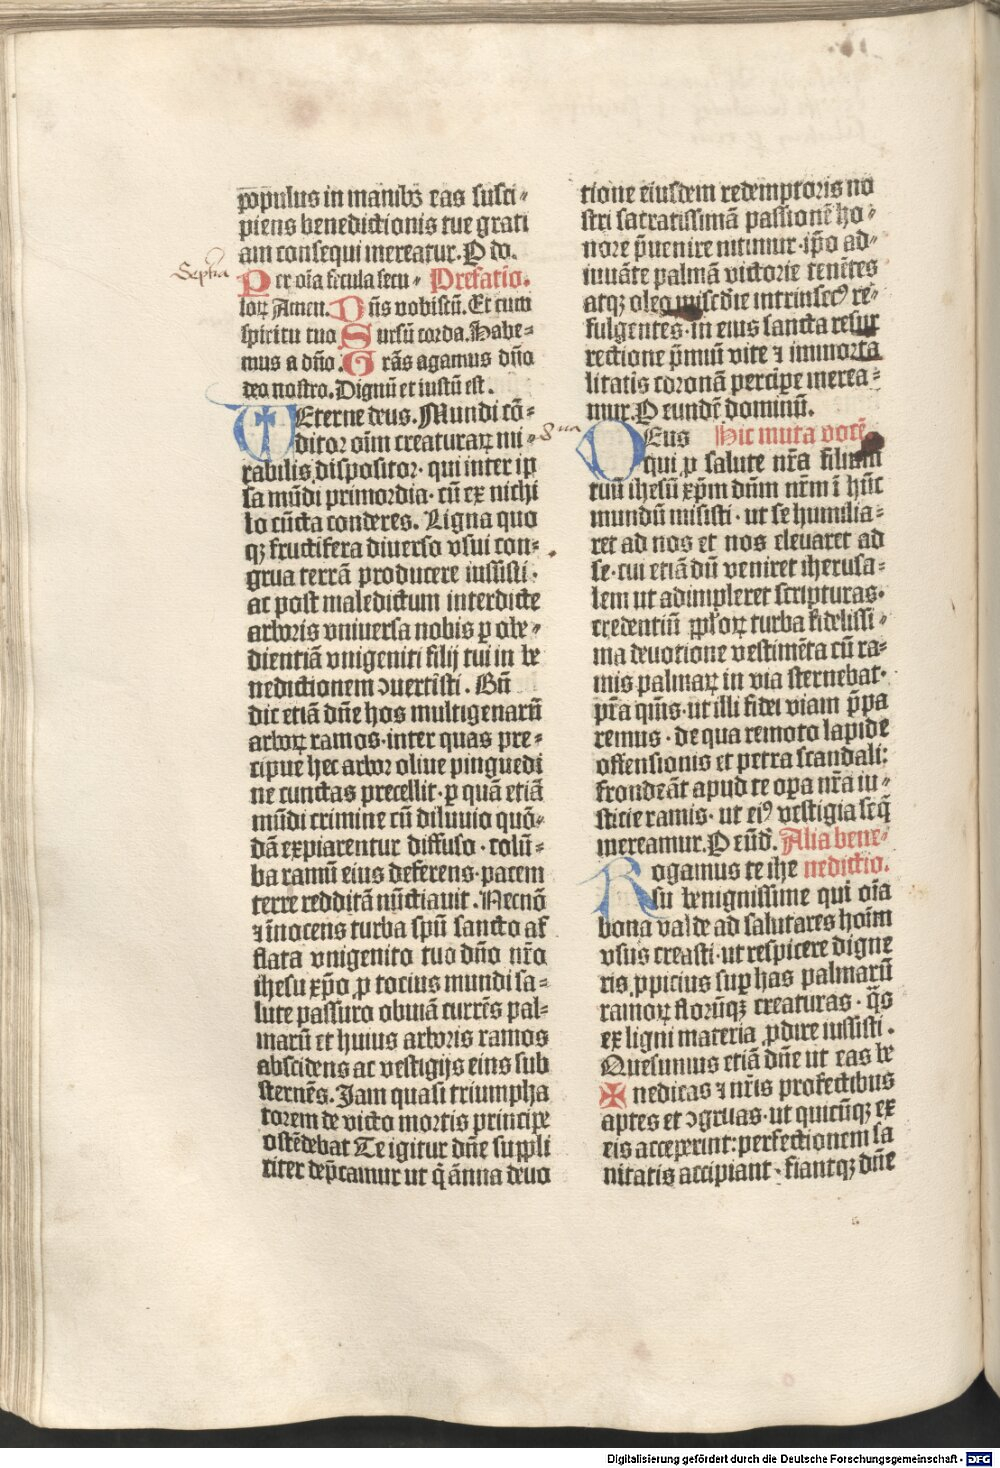 populus in manibꝫ eas susci⸗
piens benedictionis tue grati
am consequi mereatur. P do.
Septīa
Per oīa secula secu⸗ Prefatio.
loꝝ Amen. Dn̄s vobiscū. Et cum
spiritu tuo Sursū corda. Habe⸗
mus a dn̄o. Grās agamus dn̄o
deo nostro. Dignū et iustū est.
Eterne deus. Mundi cō⸗
ditor oīm creaturaꝝ mi⸗
rabilis dispositor· qui inter ip
sa mūdi primordia· cū ex nichi
lo cūcta conderes. Ligna quo
qꝫ fructifera diuerso vsui con⸗
grua terrā producere iussisti·
ac post maledictum interdicte
arboris vniuersa nobis ꝑ obe⸗
dientiā vnigeniti filij tui in be
nedictionem ꝯuertisti. Bn̄
dic etiā dn̄e hos multigenarū
arboꝝ ramos· inter quas pre⸗
cipue hec arbor oliue pinguedi
ne cunctas precellit· ꝑ quā etiā
mūdi crimine cū diluuio quō⸗
dā expiarentur diffuso· colū⸗
ba ramū eius deferens· pacem
terre redditā nūctiauit. Necnō
⁊ īnocens turba spū sancto af
flata vnigenito tuo dn̄o nr̄o
ihesu xp̄o ꝓ tocius mundi sa⸗
lute passuro obuiā currēs pal⸗
marū et huius arboris ramos
abscidens ac vestigijs eius sub
sternēs. Iam quasi triumpha
torem de victo mortis principe
ostēdebat Te igitur dn̄e suppli
citer dep̄camur ut q̄ ānna deuo
tione eiusdem redemptoris no
stri sacratissimā passionē ho⸗
nore p̄uenire nitimur· ip̄o ad⸗
iuuāte palmā victorie tenētes
atqꝫ oleo misc̄die intrinsecꝰ re⸗
fulgentes· in eius sancta resur
rectione p̄miū vite ⁊ immorta
litatis coronā percipe merea⸗
mur. P eundē dominū.
8ua
Deus Hic muta vocē.
qui ꝓ salute nr̄a filium
tuū ihesū xp̄m dn̄m nr̄m ī hūc
mundū misisti· ut se humilia⸗
ret ad nos et nos eleuaret ad
se· cui etiā dū veniret iherusa⸗
lem ut adimpleret scripturas·
credentiū pp̄loꝝ turba fidelissi⸗
ma deuotione vestimēta cū ra⸗
mis palmaꝝ in via sternebat·
pr̄a qm̄s· ut illi fidei viam p̄pa
remus· de qua remoto lapide
offensionis et petra scandali:
frondeāt apud te oꝑa nr̄a iu⸗
sticie ramis· ut eiꝰ vestigia seq̄
mereamur. P eūd̄. Alia bene⸗
Rogamus te ihe nedictio.
su benignissime qui oīa
bona valde ad salutares hoīm
vsus creasti· ut respicere digne
ris ꝓpicius suꝑ has palmarū
ramoꝝ florūqꝫ creaturas· q̄s
ex ligni materia ꝓdire iussisti.
Quesumus etiā dn̄e ut eas be
✠ nedicas ⁊ nr̄is profectibus
aptes et ꝯgruas· ut quicūqꝫ ex
eis acceperint: perfectionem sa
nitatis accipiant· fiantqꝫ dn̄e
Digitalisierung gefördert durch die Deutsche Forschungsgemeinschaft - DFG